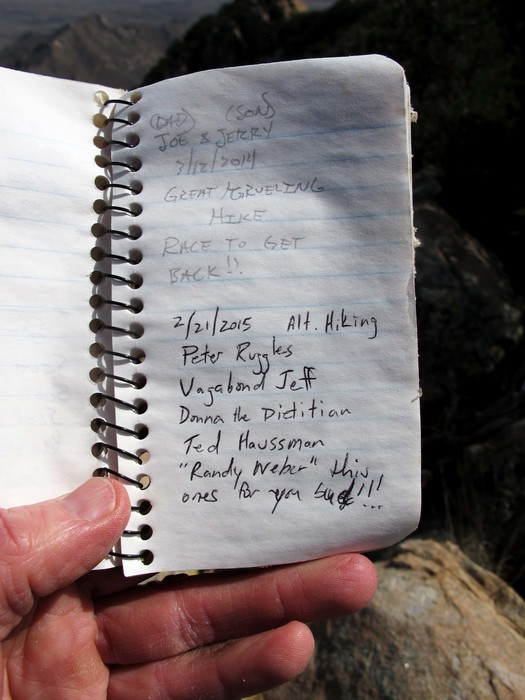 (DAD) (SON)
JOE & JERRY
3/12/2014
GREAT/GRUELING
HIKE
RACE TO GET
BACK!!
2/21/2015 Alt. Hiking
Peter Ruggles
Vagabond Jeff
Donna the Dietitian
Ted Haussman
"Randy Weber" this
ones for you bud!!!...